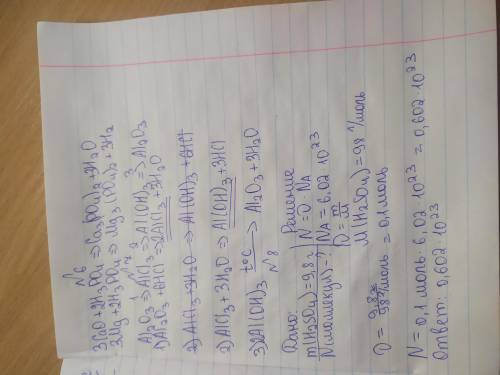 N6
3CaO + 2H₃PO₄ => Ca₃(PO₄)₂ + 3H₂O
3Mg + 2H₃PO₄ => Mg₃(PO₄)₂ + 3H₂
N7
Al₂O₃ =>¹ AlCl₃ =>² Al(OH)₃ =>³ Al₂O₃
1) Al₂O₃ + 6HCl => 2AlCl₃ + 3H₂O
2) AlCl₃ + 3H₂O => Al(OH)₃ + 6HCl
2) AlCl₃ + 3H₂O => Al(OH)₃ + 3HCl
3) 2Al(OH)₃ t°C → Al₂O₃ + 3H₂O
N8
Дано: Решение
m(H₂SO₄) = 9,8г N = ν · NA
N(молекул) = ? NA = 6,02 · 10²³
ν = m/M
M(H₂SO₄) = 98 г/моль
ν = 9,8г/98г/моль = 0,1 моль
N = 0,1 моль · 6,02 · 10²³ = 0,602 · 10²³
Ответ: 0,602 · 10²³